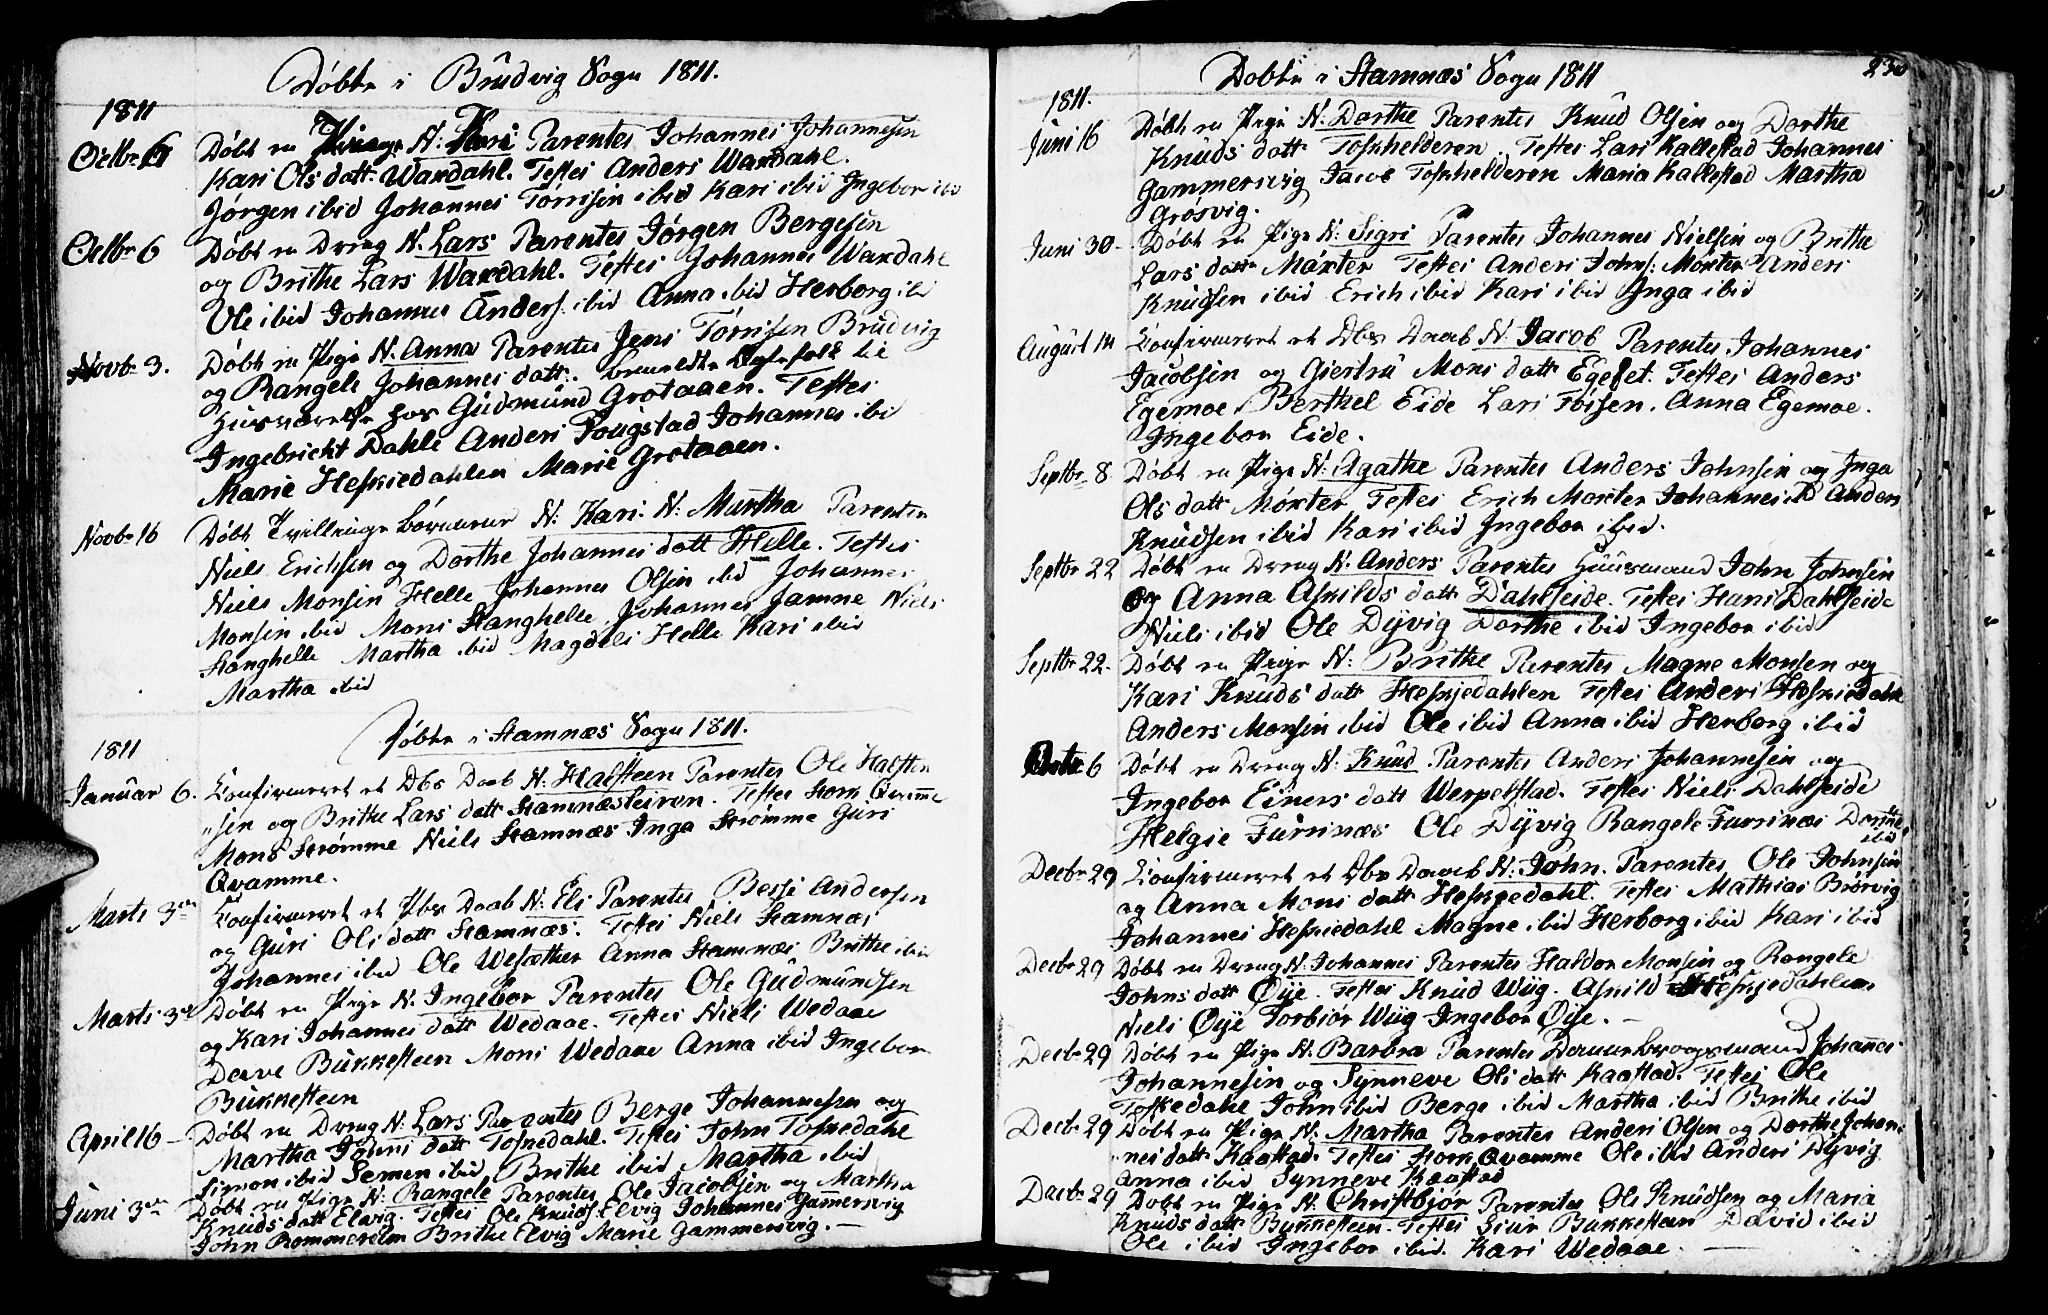 Døbte i Brudvig Sogn 1811.
1811
Octbr 6 Døbt en Pige N: Kari Parentes Johannes Johannesen
Kari Ols datt. Wardahl. Testes Anders Wardahl.
Jørgen ibid Johannes Torrisen ibid Kari ibid Ingebor ibid
Octbr 6 Døbt en Dreng N. Lars Parentes Jørgen Bergesen
og Brithe Lars Wardahl. Testes Johannes Wardahl
Ole ibid Johannes Anders. ibid Anna ibid Herborg ibd
Novbr 3. Døbt en Pige N. Anna Parentes Jens Torrisen Brudvig
og Rangele Johannes datt.
Huusværelse hos Gudmund Grotaaen. Testes
Ingebricht Dahle Anders Fougstad Johannes ibd
Marie Heskiedahlen Marie Grotaaen.
Novbr 16 Døbt Tvillinge Børnene N: Kari N: Martha Parentes
Niels Erichsen og Dorthe Johannes datt Helle. Testes
Niels Monsen Helle Johannes Olsen ibid Johannes
Monsen ibid Mons Stanghelle Johannes Jamne Niels
Stanghelle Martha ibid Magdeli Helle Kari ibid
Martha ibid
Døbte i Stamnæs Sogn 1811.
1811
Januar 6. Confirmeret et Dbs Daab N: Halsteen Parentes Ole Halsten
"sen og Brithe Lars datt Stamnæsleiren. Testes Stork Qvamme
Mons Strømme Niels Stamnæs Inga Strømme Guri
Qvamme.
Marts 3die Confirmeret et Pbs Daab N: Eli Parentes Bessi Andersen
og Guri Ols datt Stamnæs. Testes Niels Stamnæs
Johannes ibid Ole Wesæther Anna Stamnæs Brithe ibid
Marts 3die Døbt en Pige N. Ingebor Parentes Ole Gudmundsen
og Kari Johannes datt Wedaae. Testes Niels Wedaae
Dave Bukkesteen Mons Wedaae Anna ibid Ingebor
Bukkesteen
April 16 – Døbt en Dreng N: Lars Parentes Berge Johannesen og
Martha Johns datt Toskedahl. Testes John Toskedahl
Simon ibid Semen ibid Brithe ibid Martha ibid
Juni 3die Døbt en Pige N: Rangele Parentes Ole Jacobsen og Martha
Knuds datt Elvig. Testes Ole Knuds: Elvig Johannes Gammersvig
John Rommereim Brithe Elvig Marie Gammersvig. —
Døbte i Stamnæs Sogn 1811
230
1811.
Juni 16 Døbt en Pige N: Dorthe Parentes Knud Olsen og Dorthe
Knuds datt Toskhelderen. Testes Lars Kallestad Johannes
Gammersvig Jacob Toskhelderen Maria Kallestad Martha
Grøsvig.
Juni 30 – Døbt en Pige N: Sigri Parentes Johannes Nielsen og Brithe
Lars datt Møxter Testes Anders Johns: Møxter Anders
Knudsen ibid Erich ibid Kari ibid Inga ibid
August 14 Confirmeret et Dbs Daab N. Jacob Parentes Johannes
Jacobsen og Giertru Mons datt Egeset. Testes Anders
Egemoe Berthel Eide Lars Foisen. Anna Egemoe.
Ingebor Eide.
Septbr 8. Døbt en Pige N: Agathe Parentes Anders Johnsen og Inga
Ols datt Moxter Testes Erich Moxter Johannes ibd Anders
Knudsen ibid Kari ibid Ingebor ibid.
Septbr 22 Døbt en Dreng N. Anders Parentes Huusmand John Johnsen
og Anna Askilds datt Dahlseide. Testes Hans Dahlseide
Niels ibid Ole Dyvig Dorthe ibid Ingebor ibid
Septbr 22. Døbt en Pige N: Brithe Parentes Magne Monsen og
Kari Knuds datt Heskjedahlen Testes Anders Heskiedahl
Anders Monsen ibid Ole ibid Anna ibid Herborg ibid
Octbr 6 Døbt en Dreng N: Knud Parentes Anders Johannesen og
Ingebor Einers datt Werpelstad. Testes Niels Dahlseide
Helgie Furrinæs Ole Dyvig Rangele Furrinæs Dorthe
ibid
Decbr 29 Confirmeret et Dbs Daab N: John. Parentes Ole Johnsen
og Anna Mons datt Heskjedahl. Testes Mathias Brørvig
Johannes Heskiedahl Magne ibid Herborg ibid Kari ibid
Decbr 29 Døbt en Dreng N: Johannes Parentes Haldor Monsen og Rangele
Johns datt Øye. Testes Knud Wiig. Askild Heskjedahlen
Niels Øye Torbiør Wiig Ingebor Øye. —
Decbr 29 Døbt en Pige N. Barbra Parentes Johannes
Johannesen og Synneve Ols datt Kaastad. Testes Ole
Toskedahl John ibid Berge ibid Martha ibid Brithe ibid
Decbr 29 Døbt en Pige N: Martha Parentes Anders Olsen og Dorthe Johan-
nes datt Kaastad. Testes Stork Qvamme Ole ibid Anders Dyvig
Anna ibid Synneve Kaastad
Decbr 29 Døbt en Pige N: Christbjør Parentes Ole Knudsen og Maria
Knuds datt Bukkesteen. Testes Siur Bukkesteen David ibid
Ole ibid Ingebor ibid. Kari Wedaae. —